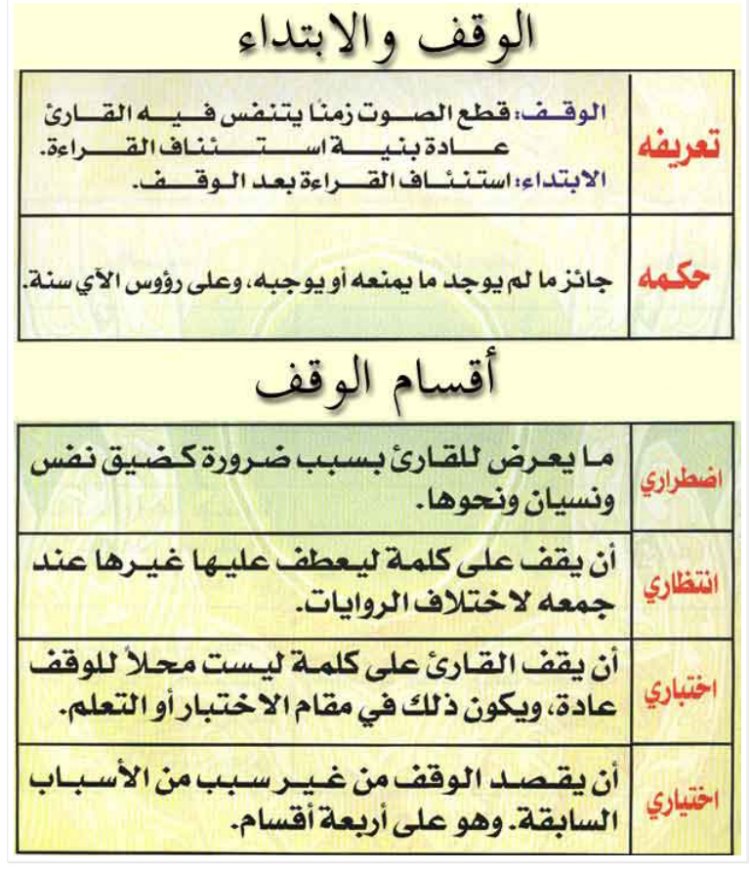 الوقف والابتداء
تعريفه
الوقف: قطع الصوت زمنًا يتنفس فيه القارئ
عادة بنية استئناف القراءة.
الابتداء: استنئاف القراءة بعد الوقف.
حكمه
جائز ما لم يوجد ما يمنعه أو يوجبه، وعلى رؤوس الآي سنة.
أقسام الوقف
اضطراري
ما يعرض للقارئ بسبب ضرورة كضيق نفس
ونسيان ونحوها.
انتظاري
أن يقف على كلمة ليعطف عليها غيرها عند
جمعه لاختلاف الروايات.
اختباري
أن يقف القارئ على كلمة ليست محلاً للوقف
عادة، ويكون ذلك في مقام الاختبار أو التعلم.
اختياري
أن يقصد الوقف من غير سبب من الأسباب
السابقة. وهو على أربعة أقسام.